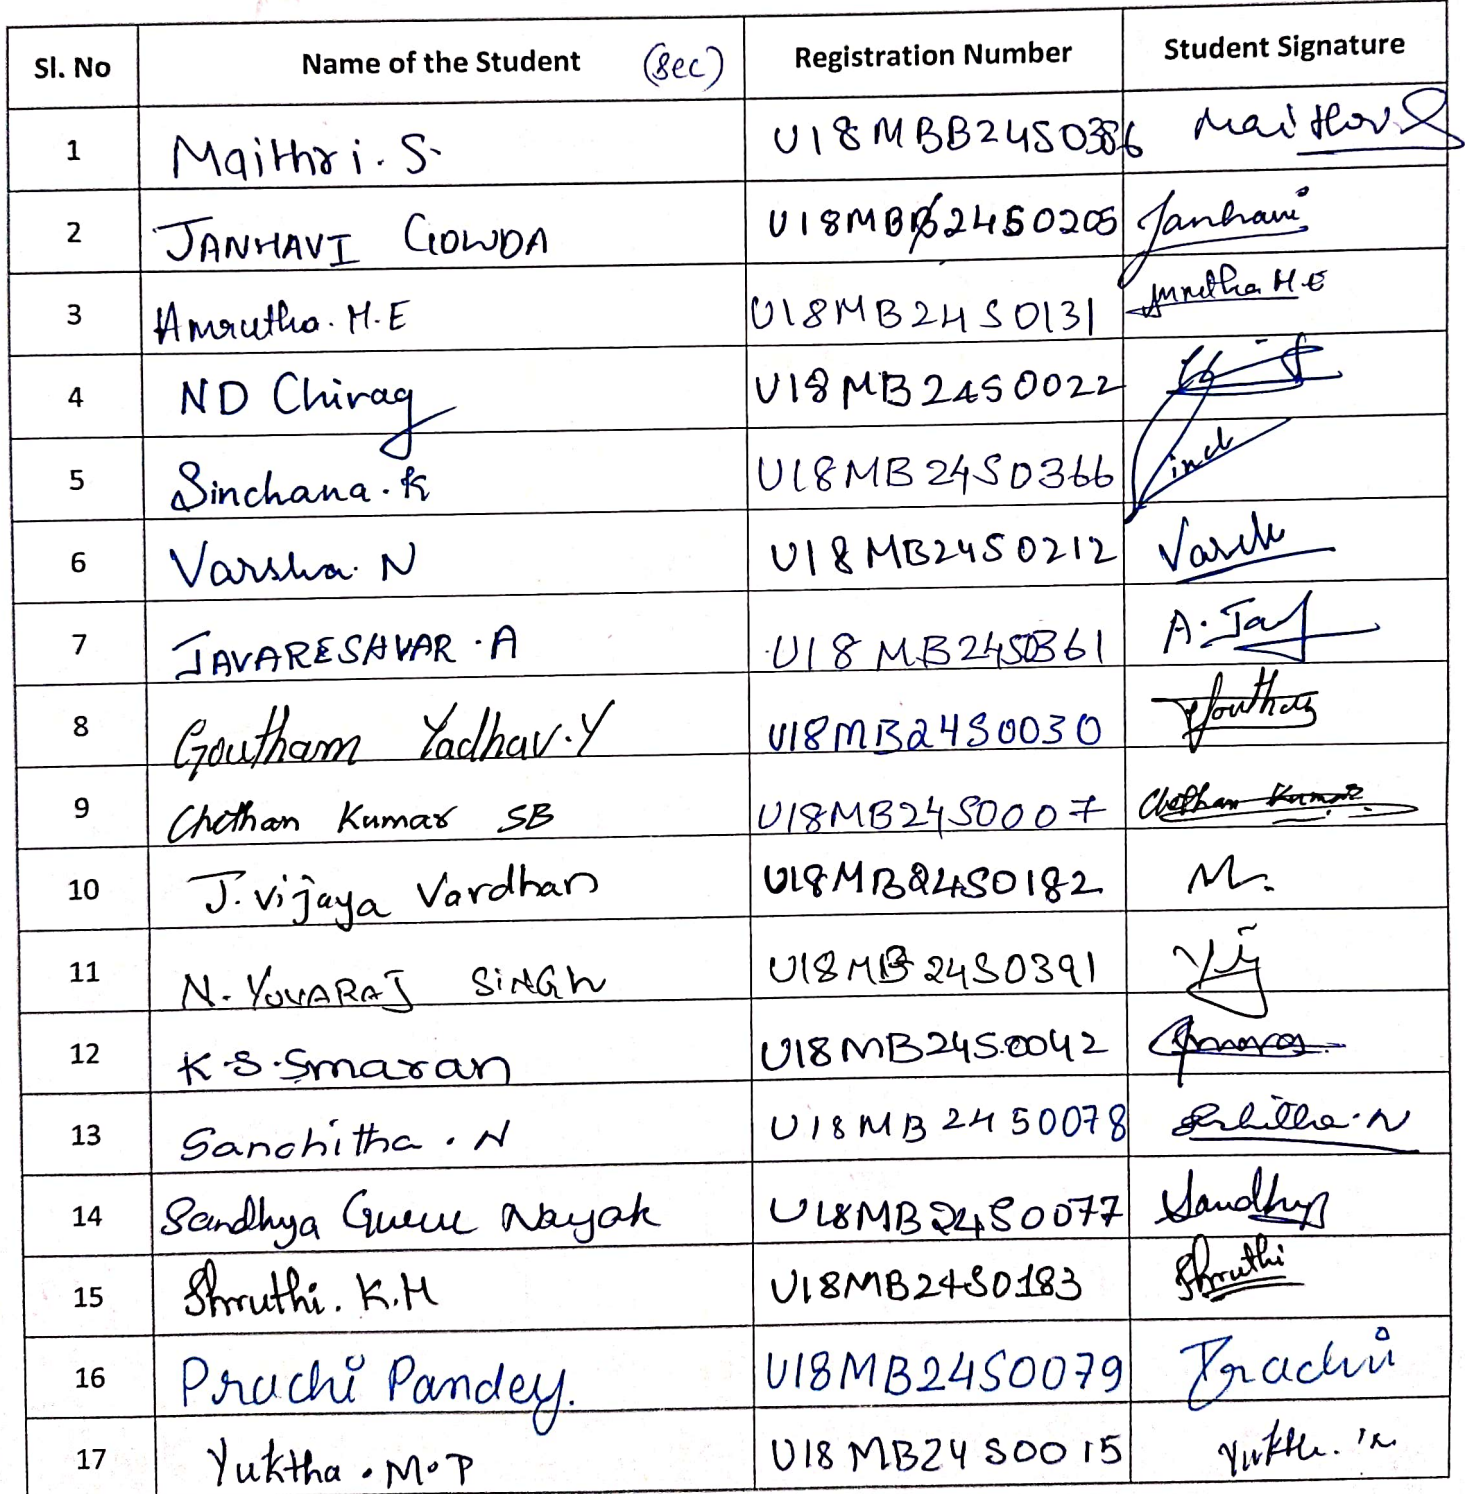 Sl. No Name of the Student (Sec) Registration Number Student Signature
1 Maithri. S. U18MBB24S0386 Maithri S
2 JANHAVI GOWDA U18MBB24S0205 Janhavi
3 Amrutha. M.E U18MB24S0131 Amrutha M.E
4 ND Chirag U18MB24S0022
5 Sinchana. K U18MB24S0366 Sinch
6 Varsha. N U18MB24S0212 Varsh
7 JAVARESHVAR . A U18MB24S0361 A. Jav
8 Goutham Yadhav. Y U18MB24S0030 Goutham
9 Chethan Kumar SB U18MB24S0007 Chethan Kumar
10 J. Vijaya Vardhan U18MB24S0182
11 N. YUVARAJ SiNGh U18MB24S0391
12 K.S. Smaran U18MB24S0042 Smaran
13 Sanchitha . N U18MB24S0078
14 Sandhya Guru Nayak U18MB24S0077 Sandhya
15 Shruthi. K.M U18MB24S0183 Shruthi
16 Prachi Pandey. U18MB24S0079 Prachi
17 Yuktha . M.P U18MB24S0015